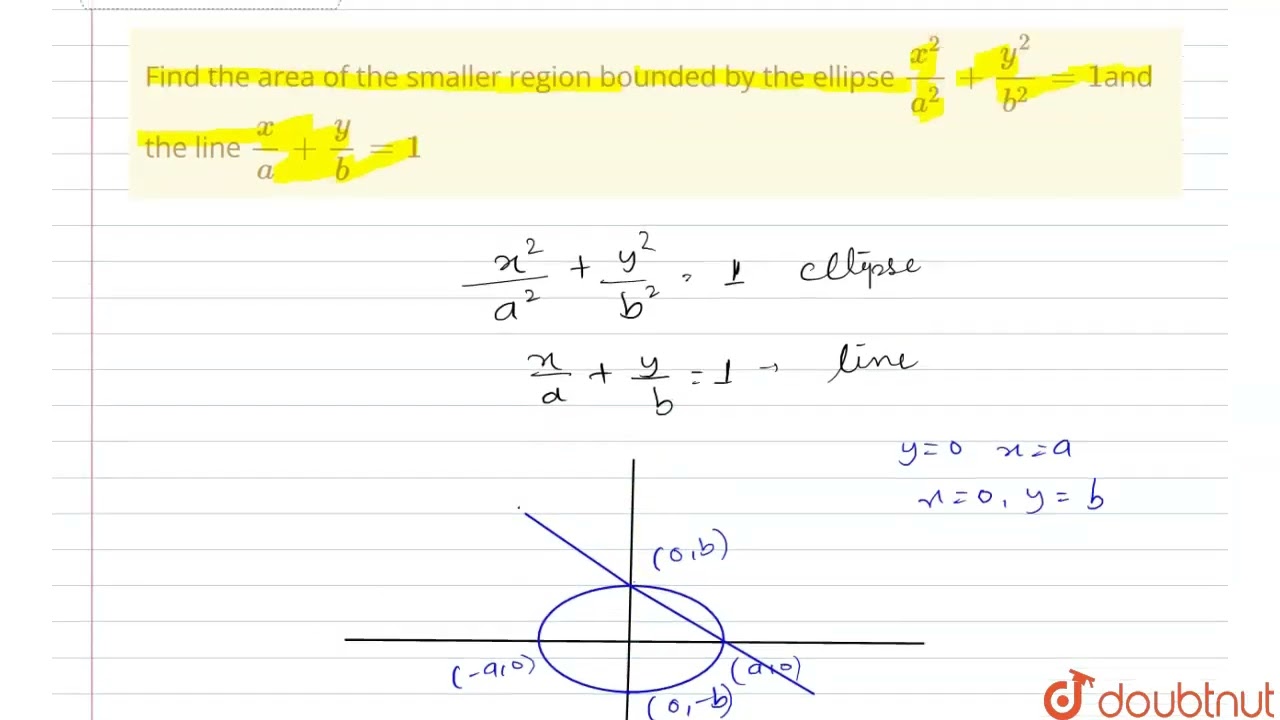 Find the area of the smaller region bounded by the ellipse x²/a² + y²/b² = 1and
the line x/a + y/b = 1
x²/a² + y²/b² = 1 ellipse
x/a + y/b = 1 → line
y=0 x=a
x=0, y=b
(0,b)
(-a,0) (a,0)
(0,-b)
doubtnut